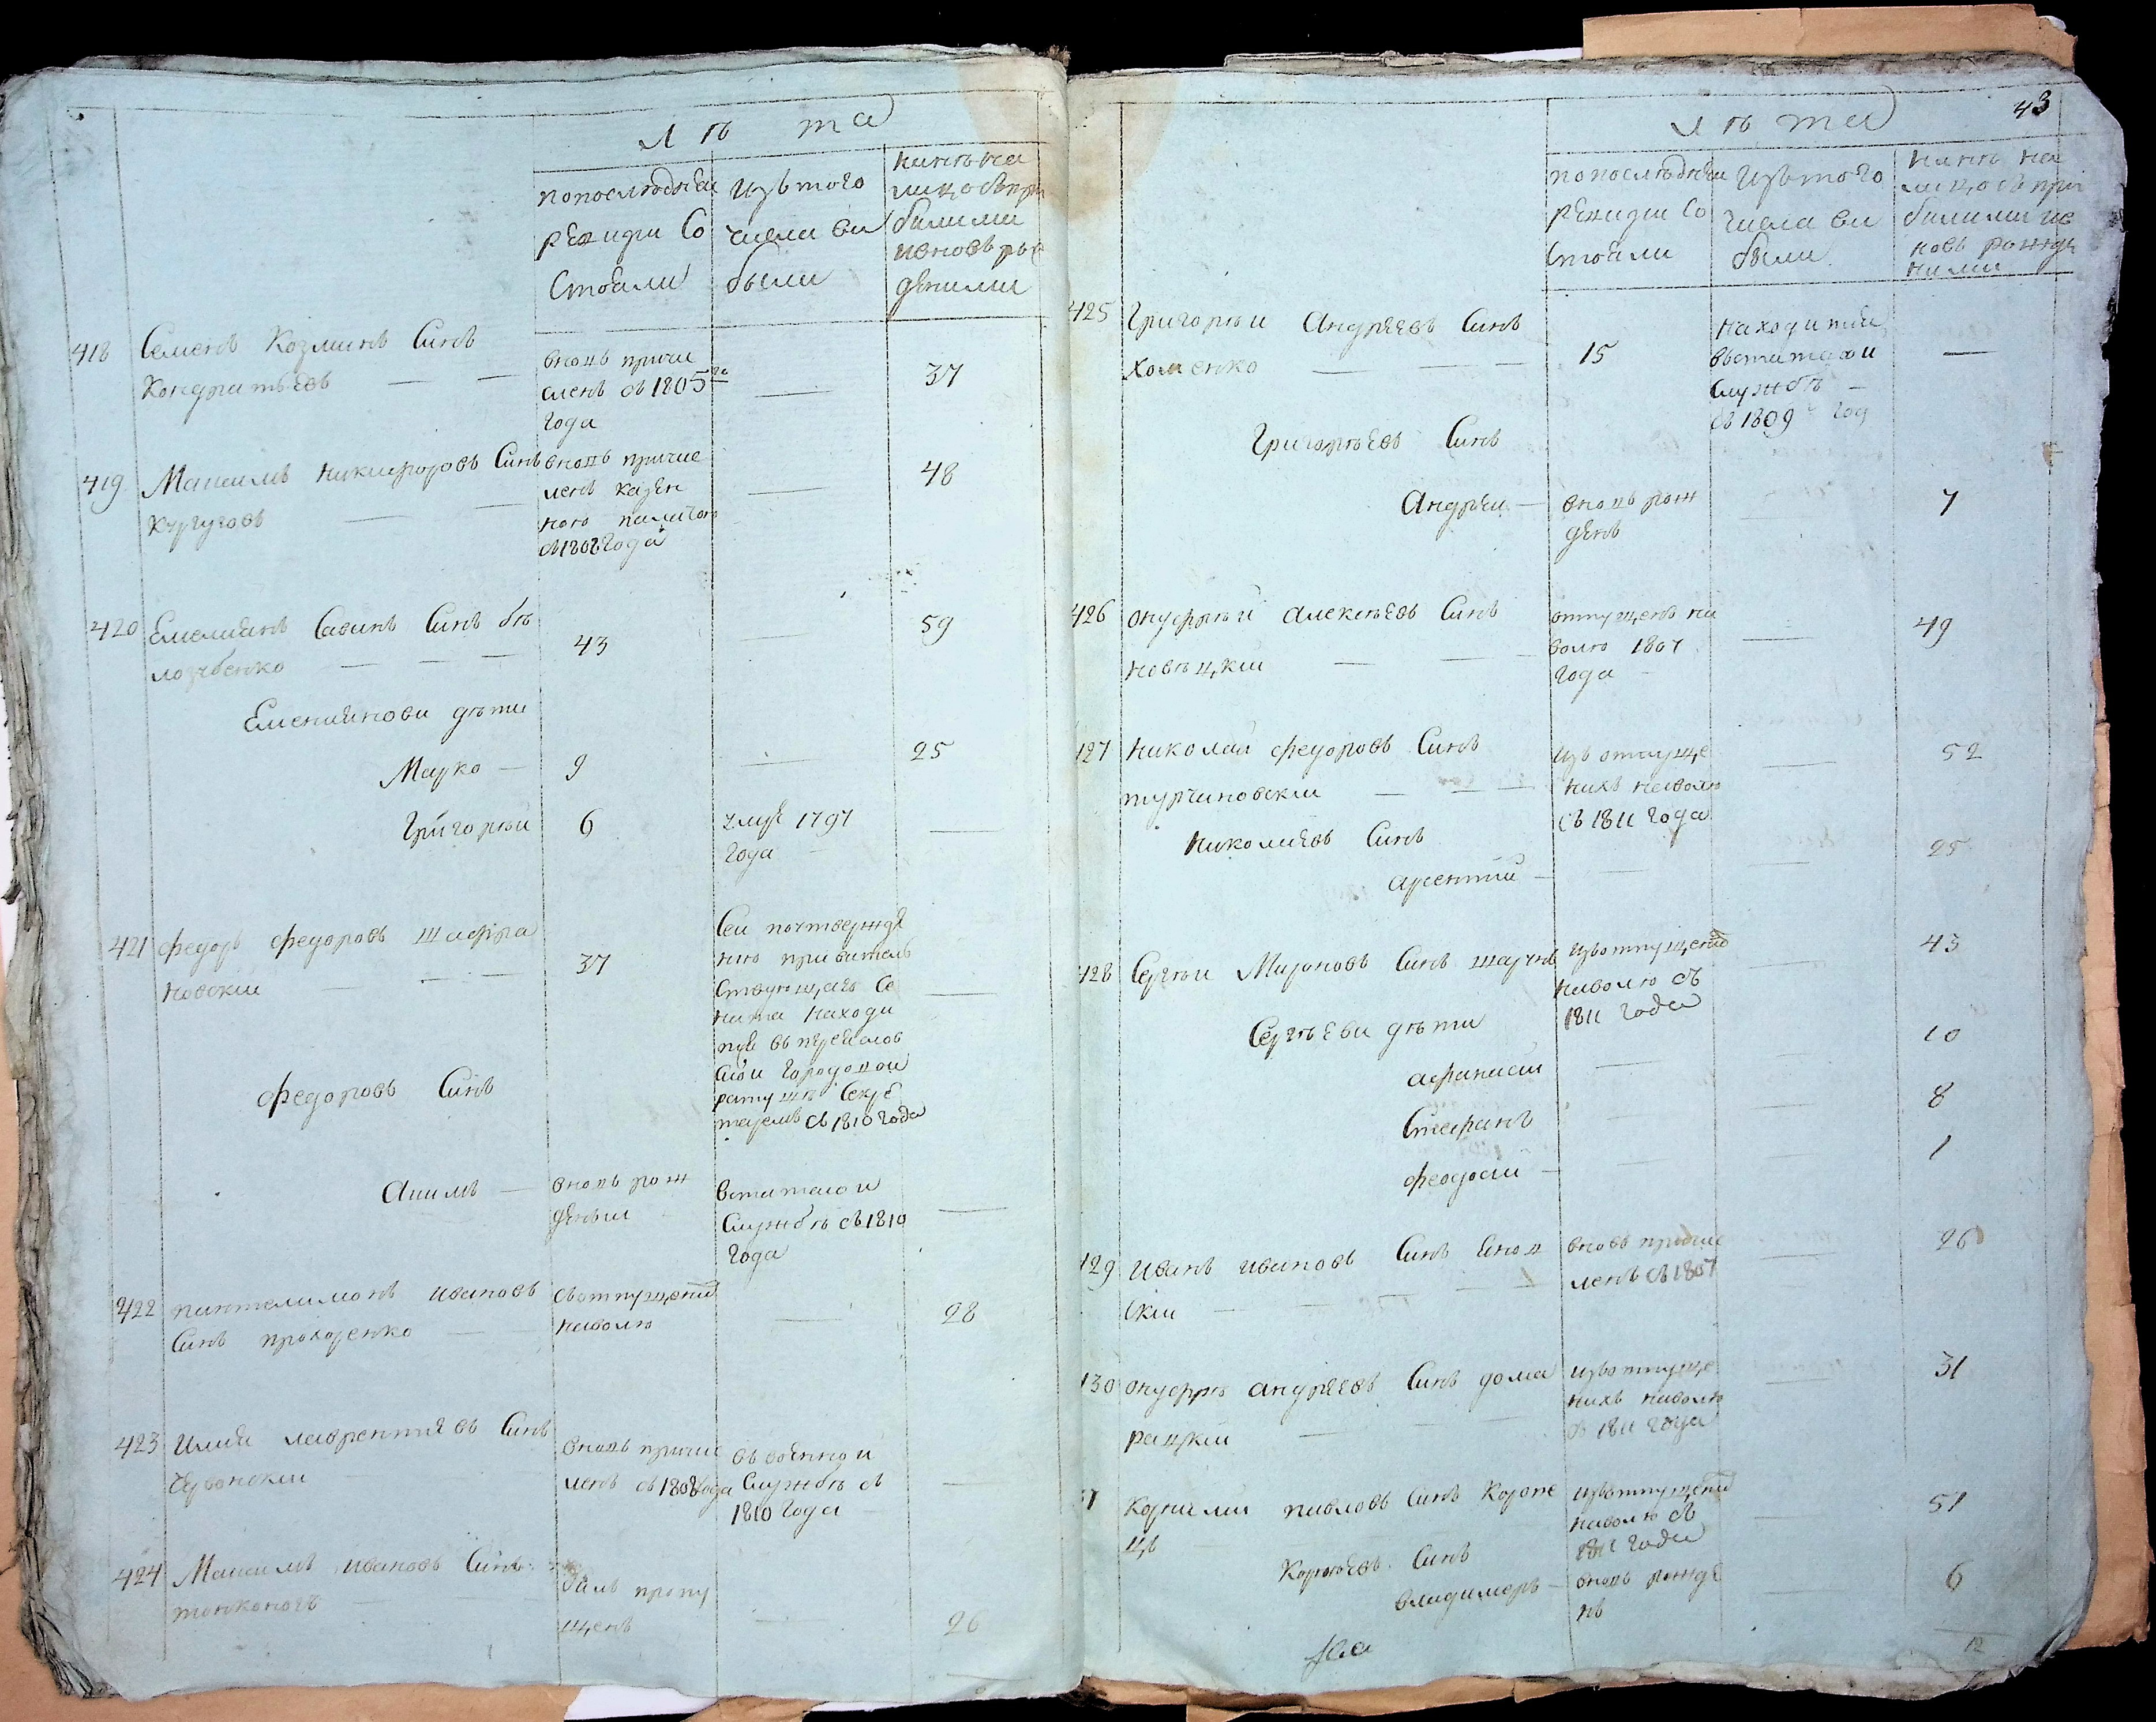 лѣта
попослѣдней
ревизіи Со
стояли
изъ того
числа вы
были
нинѣ на
лицо съ при
былими
ивновь рож
денными
418 Семенъ Козминъ Синъ
Кондратьевъ
вновь причи
сленъ съ 1805го
года
37
419 Максимъ никифоровъ Синъ
Кургузовъ
вновь причис
ленъ казен
ною палатою
съ 1808 года
48
420 Емелиянъ Савинъ Синъ бѣ
43
59
Емелиянови дѣти
Марко
9
25
Григорѣи
6
умре 1797
года
421 федоръ федоровъ шафра
новскии
37
Сеи поутвержде
нию правитель
ствующаго Се
ната находи
тся въ переяслов
скои городовои
ратушѣ Секре
таремъ съ 1810 года
федоровъ Синъ
Акимъ
вновь рож
денъи
встатскои
Службѣ съ 1810
года
422 пантелимонъ ивановъ
Синъ прохоренко
съ отпущених
наволю
28
423 илия лаврентиевъ Синъ
Червонскии
вновь причис
ленъ съ 1808 года
въ военнои
Службѣ съ
1810 года
424 Максимъ ивановъ Синъ
тонконогъ
билъ пропу
щенъ
26
43
лѣта
попослѣднеи
ревизіи Со
стояли
изъ того
числа ви
были
нинѣ на
лицо съ при
былими ив
новь рожде
ними
425 Григорѣи Андреевъ Синъ
Хоменко
15
находится
встатскои
службѣ
съ 1809 год
Григорѣевъ Синъ
Андрѣи
вновь рож
денъ
7
426 онуфрѣи алексѣевъ Синъ
новѣцкии
отпущенъ на
волю 1807
года
49
127 николаи федоровъ Синъ
турчиновскии
изъ отпуще
нихъ наволю
съ 1811 года
52
николаевъ Синъ
арсентии
25
128 Сергѣи Мироновъ Синъ
изъотпущених
наволю съ
1811 года
43
Сергѣеви дѣти
афанасии
10
Стефанъ
8
феодосии
1
129 иванъ ивановъ Синъ
скии
вновь причис
ленъ съ 1807
26
130 онуфрѣ андреевъ Синъ дома
рацкии
изъотпуще
нихъ наволю
съ 1811 года
31
Корнили павловъ Синъ Короле
цъ
изъотпущених
наволю съ
1811 года
51
Синъ
владимеръ
вновь рожде
нъ
6
12